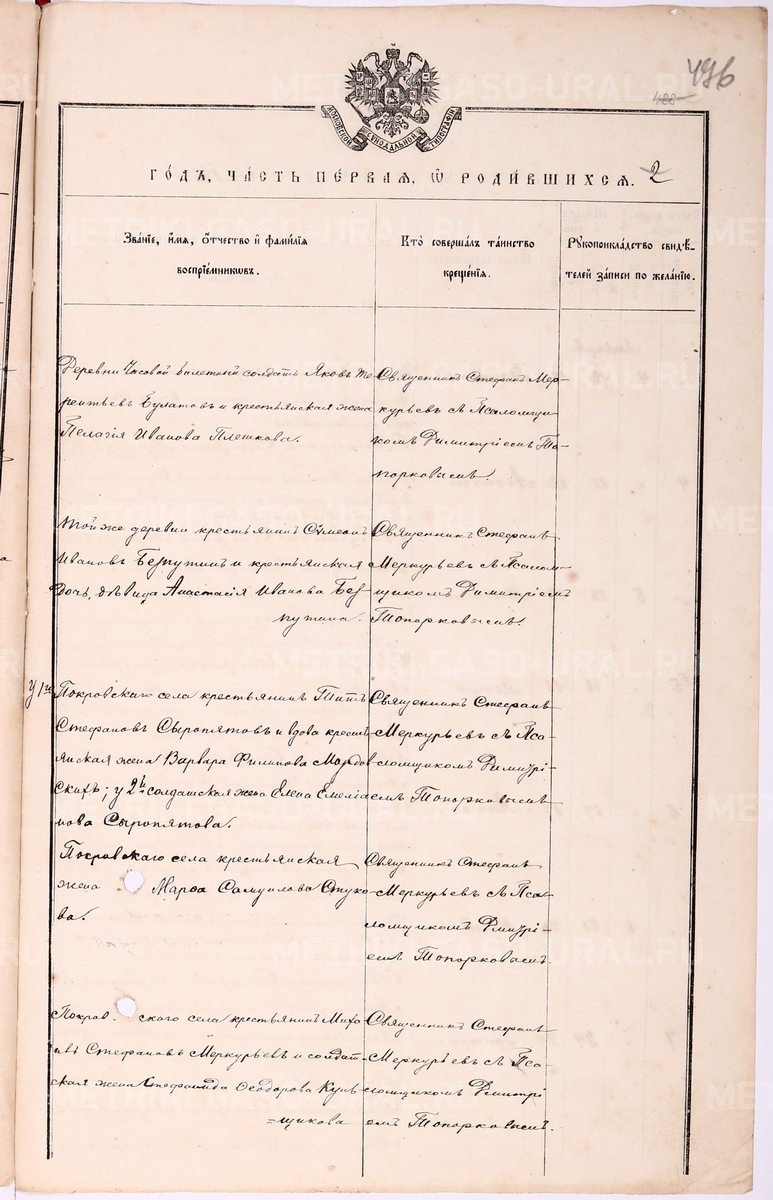 496
488
МОСКОВСКОЙ СѴНОДАЛЬНОЙ ТИПОГРАФІИ
ГОДЪ, ЧАСТЬ ПЕРВАЯ, Ѡ РОДИВШИХСЯ. 2
Званіе, имя, отчество и фамилія
воспріемниковъ.
Кто совершалъ таинство
крещенія.
Рукоприкладство свидѣ-
телей записи по желанію.
Деревни Часовой билетный солдатъ Яковъ Те-
рентьевъ Булатовъ и крестьянская жена
Пелагія Иванова Плешкова.
Священникъ Стефанъ Мер-
курьевъ съ Псаломщи-
комъ Димитріемъ То-
порковымъ.
Той же деревни крестьянинъ Сѵмеонъ
Ивановъ Безпутинъ и крестьянская
дочь, дѣвица Анастасія Иванова Без-
путина.
Священникъ Стефанъ
Меркурьевъ съ Псалом-
щикомъ Димитріемъ
Топорковымъ.
У 1го Покровскаго села крестьянинъ Титъ
Стефановъ Сыропятовъ и вдова кресть-
янская жена Варвара Филипова Мордов-
скихъ; у 2й солдатская жена Елена Емелья-
нова Сыропятова.
Священникъ Стефанъ
Меркурьевъ съ Пса-
ломщикомъ Димитрі-
емъ Топорковымъ
Покровскаго села крестьянская
жена Марѳа Самуилова Стуко-
ва.
Священникъ Стефанъ
Меркурьевъ съ Пса-
ломщикомъ Димитрі-
емъ Топорковымъ.
Покровскаго села крестьянинъ Миха-
илъ Стефановъ Меркурьевъ и солдат-
ская жена Ѳеодорова Кунь-
щикова
Священникъ Стефанъ
Меркурьевъ съ Пса-
ломщикомъ Димитрі-
емъ Топорковымъ.